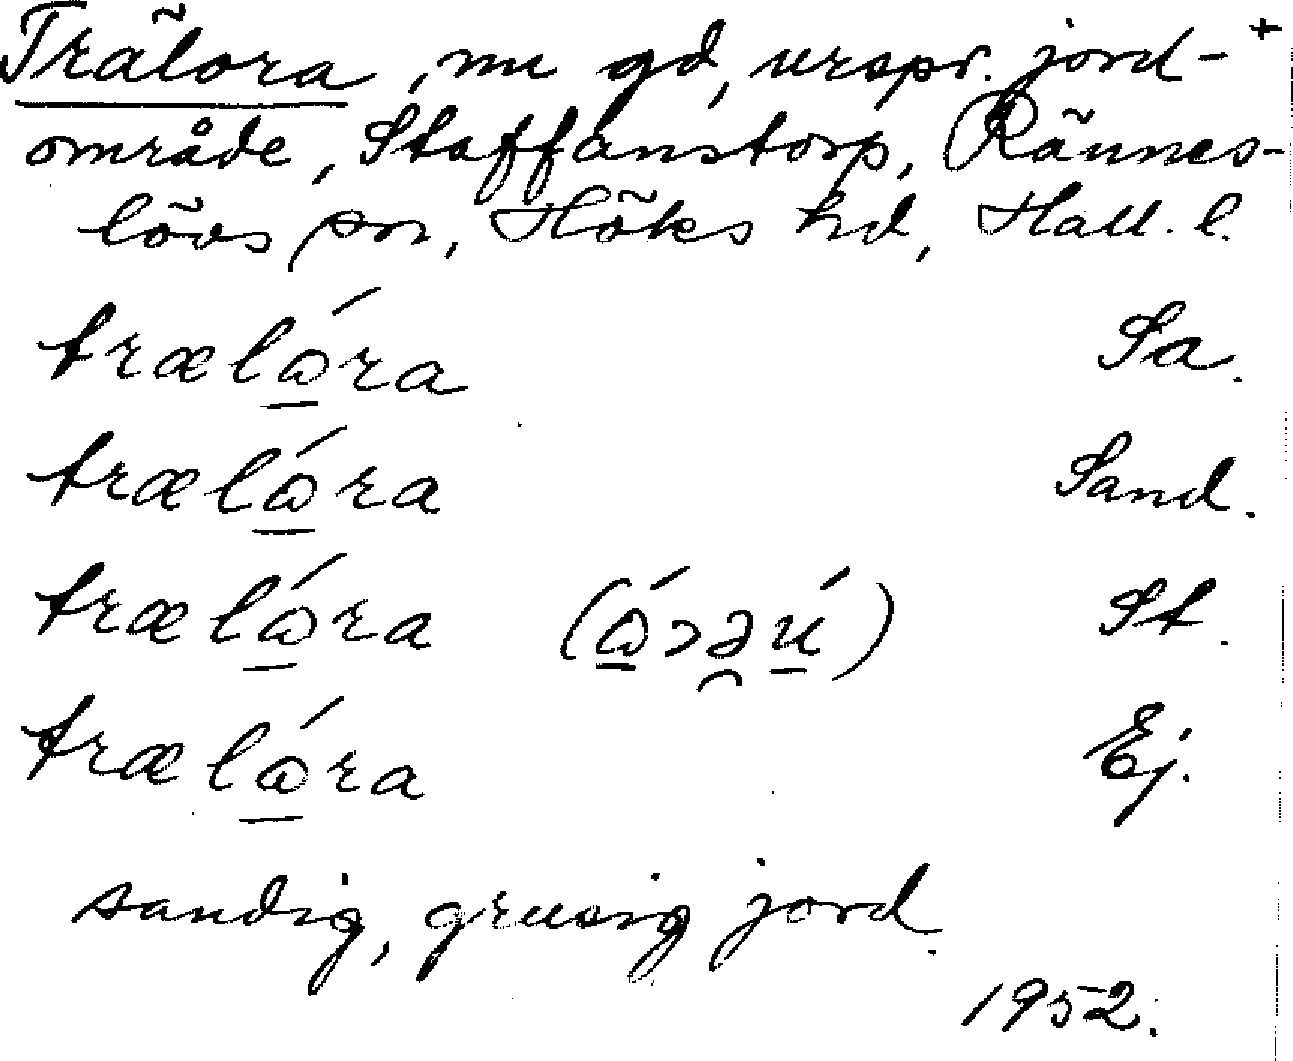 Trälora, nu gd, urspr. jord- +
område, Staffanstorp, Rännes-
lövs sn, Höks hd, Hall. l.
trælɷ̲́ra Sa.
trælɷ̲́ra Sand.
trælɷ̲́ra (ɷ̲́ɔə̯ú̲) St.
trælɷ̲́ra Ej.
sandig, grusig jord.
1952.